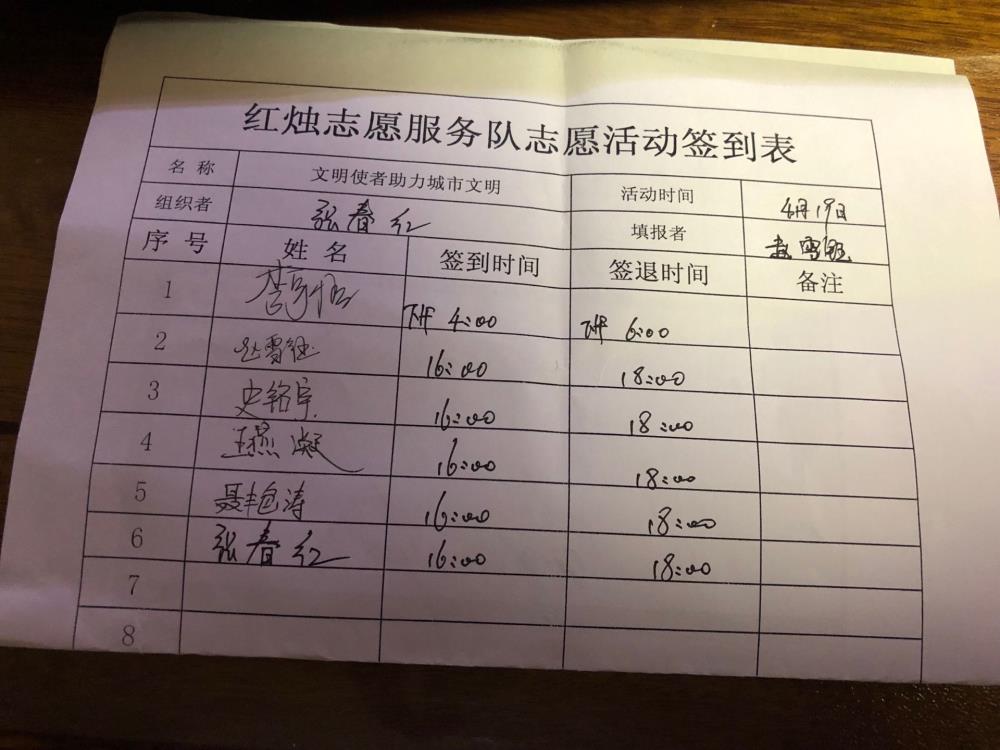 红烛志愿服务队志愿活动签到表
名 称 文明使者助力城市文明 活动时间 4月19日
组织者 张春红 填报者
序 号 姓 名 签到时间 签退时间 备注
1 下午 4:00 下午 6:00
2 16:00 18:00
3 史铭宇 16:00 18:00
4 王燕凝 16:00 18:00
5 聂丰涛 16:00 18:00
6 张春红 16:00 18:00
7
8